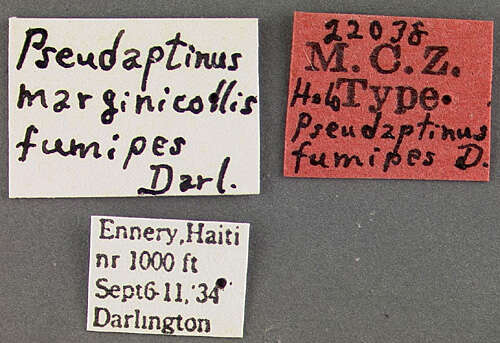 Pseudaptinus
marginicollis
fumipes
Darl.
22038
M.C.Z.
Holo Type.
Pseudaptinus
fumipes D.
Ennery, Haiti
nr 1000 ft
Sept6-11, '34
Darlington